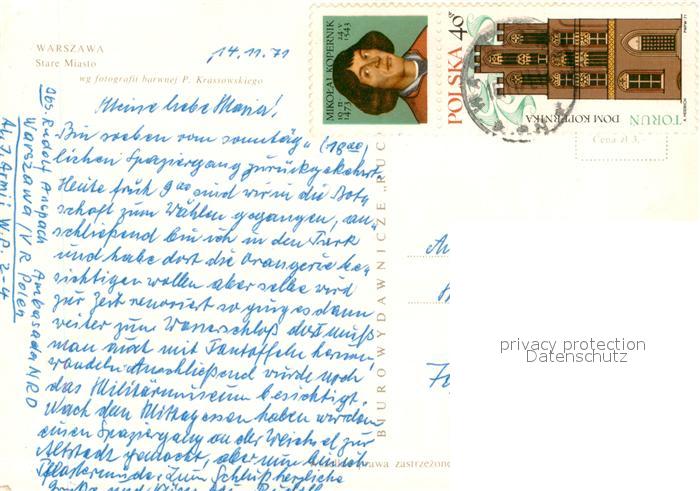 WARSZAWA
Stare Miasto
wg fotografii barwnej P. Krassowskiego
14.11.71
Meine liebe Maria!
Bin soeben vom sonntäg- (18⁰⁰)
lichen Spaziergang zurückgekehrt.
Heute früh 9⁰⁰ sind wir in die Bot-
schaft zum Wählen gegangen, an-
schließend bin ich in den Park
und habe dort die Orangerie be-
sichtigen wollen aber selbe wird
zur Zeit renoviert so ging es dann
weiter zum Wasserschloß dort muß
man auch mit Pantoffeln herum
wandeln. Anschließend wurde noch
das Militärmuseum besichtigt.
Nach dem Mittagessen haben wir dann
einen Spaziergang an der Weichsel zur
Altstadt gemacht, aber nun bin ich
Pflastermüde. Zum Schluß herzliche
Grüße und Küsse
Abs. Rudolf Anspach Ambasada NRD
Warszawa / VR Polen
Al. I. Armii W.P. 2-4
BIURO WYDAWNICZE „RUC
MIKOŁAJ KOPERNIK
19 II 1473
24 V 1543
POLSKA 40 gr
TORUŃ
DOM KOPERNIKA
Cena zł 3,-
rawa zastrzeżone
privacy protection
Datenschutz